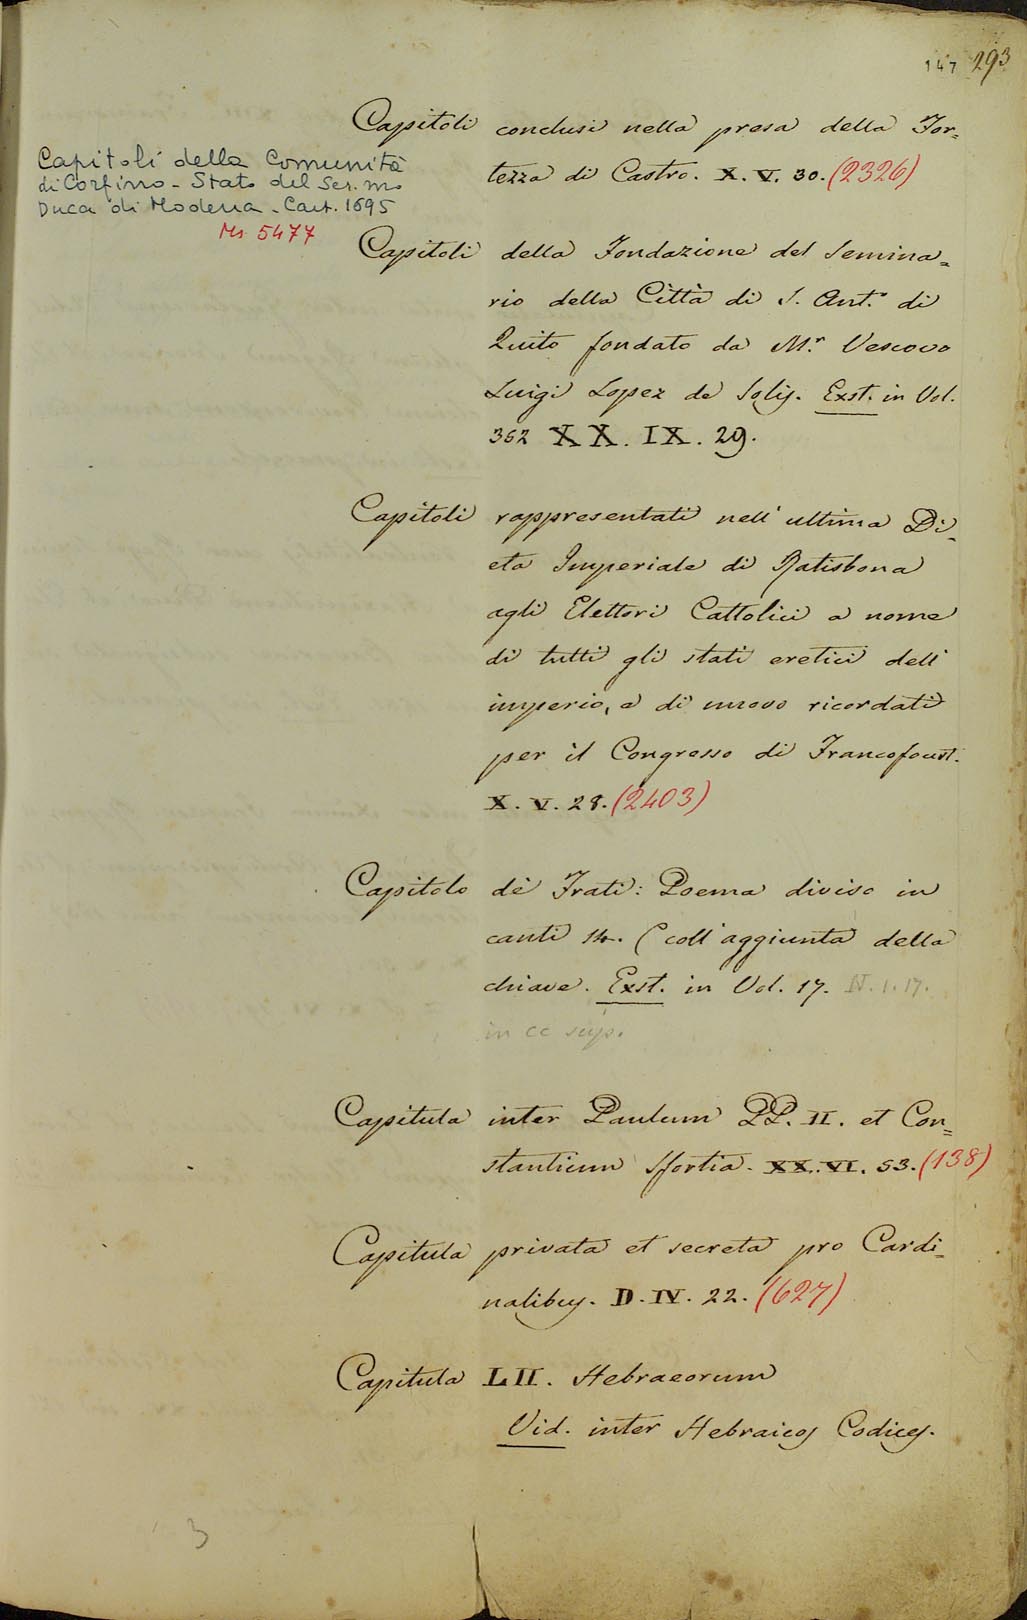 147 293
Capitoli conclusi nella presa della For=
tezza di Castro. X. V. 30. (2326)
Capitoli della Comunità
di Corfino - Stato del Ser.mo
Duca di Modena. Cart. 1695
Ms 5477
Capitoli della Fondazione del Semina=
rio della Città di S. Ant.º di
Quito fondato da M.r Vescovo
Luigi Lopez de Solis. Exst. in Vol.
352 XX. IX. 29.
Capitoli rappresentati nell' ultima Di=
eta Imperiale di Ratisbona
agli Elettori Cattolici a nome
di tutti gli stati eretici dell'
imperio, e di nuovo ricordati
per il Congresso di Francofourt.
X. V. 28. (2403)
Capitolo dè Frati: Poema diviso in
canti 14. (coll' aggiunta della
chiave. Exst. in Vol. 17. N. 1. 17.
in cc sup.
Capitula inter Paulum PP. II. et Con=
stantium Sfortia. XX. VI. 53. (138)
Capitula privata et secreta pro Cardi=
nalibus. D. IV. 22. (627)
Capitula LII. Hebraeorum
Vid. inter Hebraicos Codices.
3